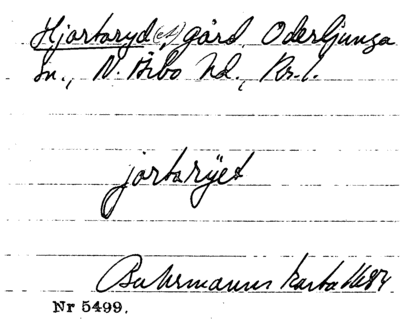 Hjortaryd(et), gård, Oderljunga
sn., N. Åsbo hd., Kr. l.
jortarÿet
Buhrmanns karta 1684
Nr 5499.